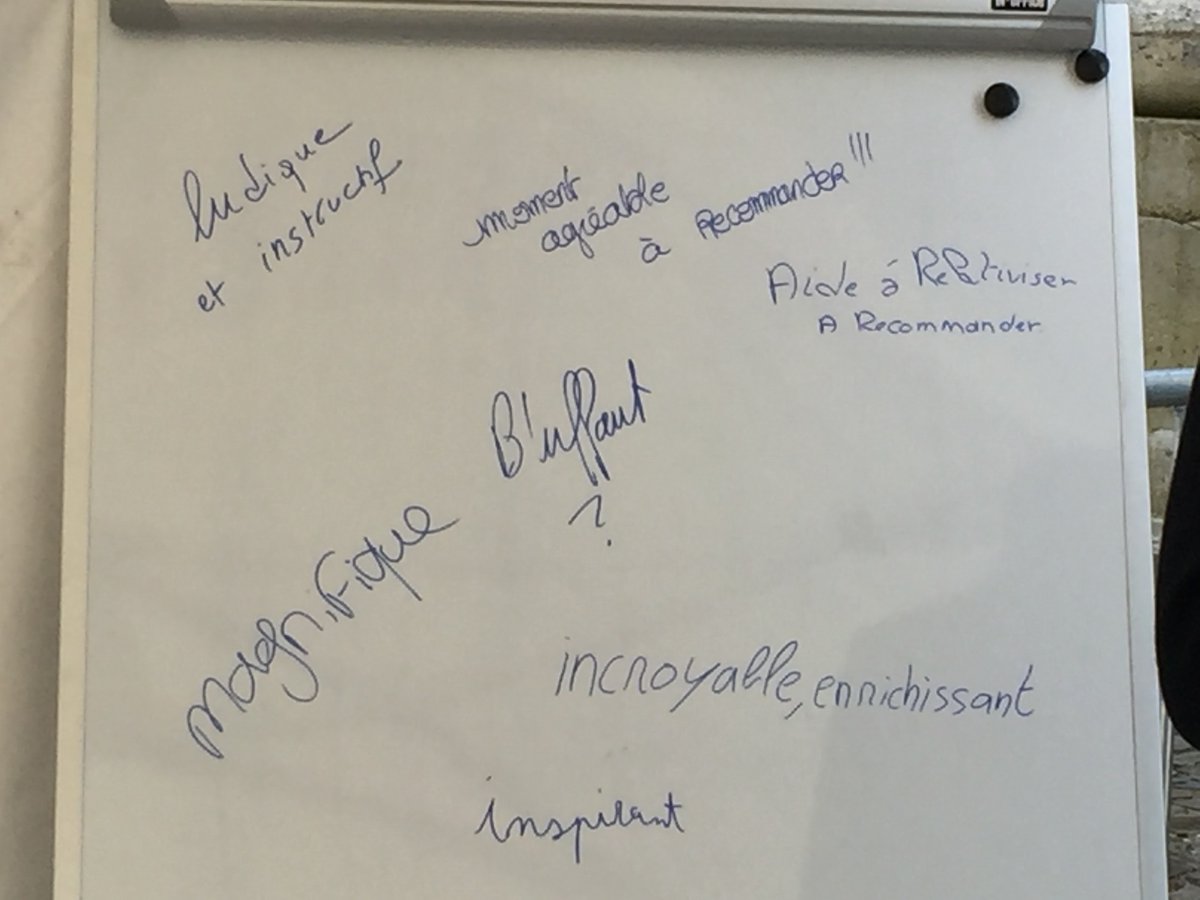 ludique
et instructif
moment
agréable
à Recommander!!!
Aide à Relativiser
A Recommander
B'uffant
?
magnifique
incroyable, enrichissant
inspirant